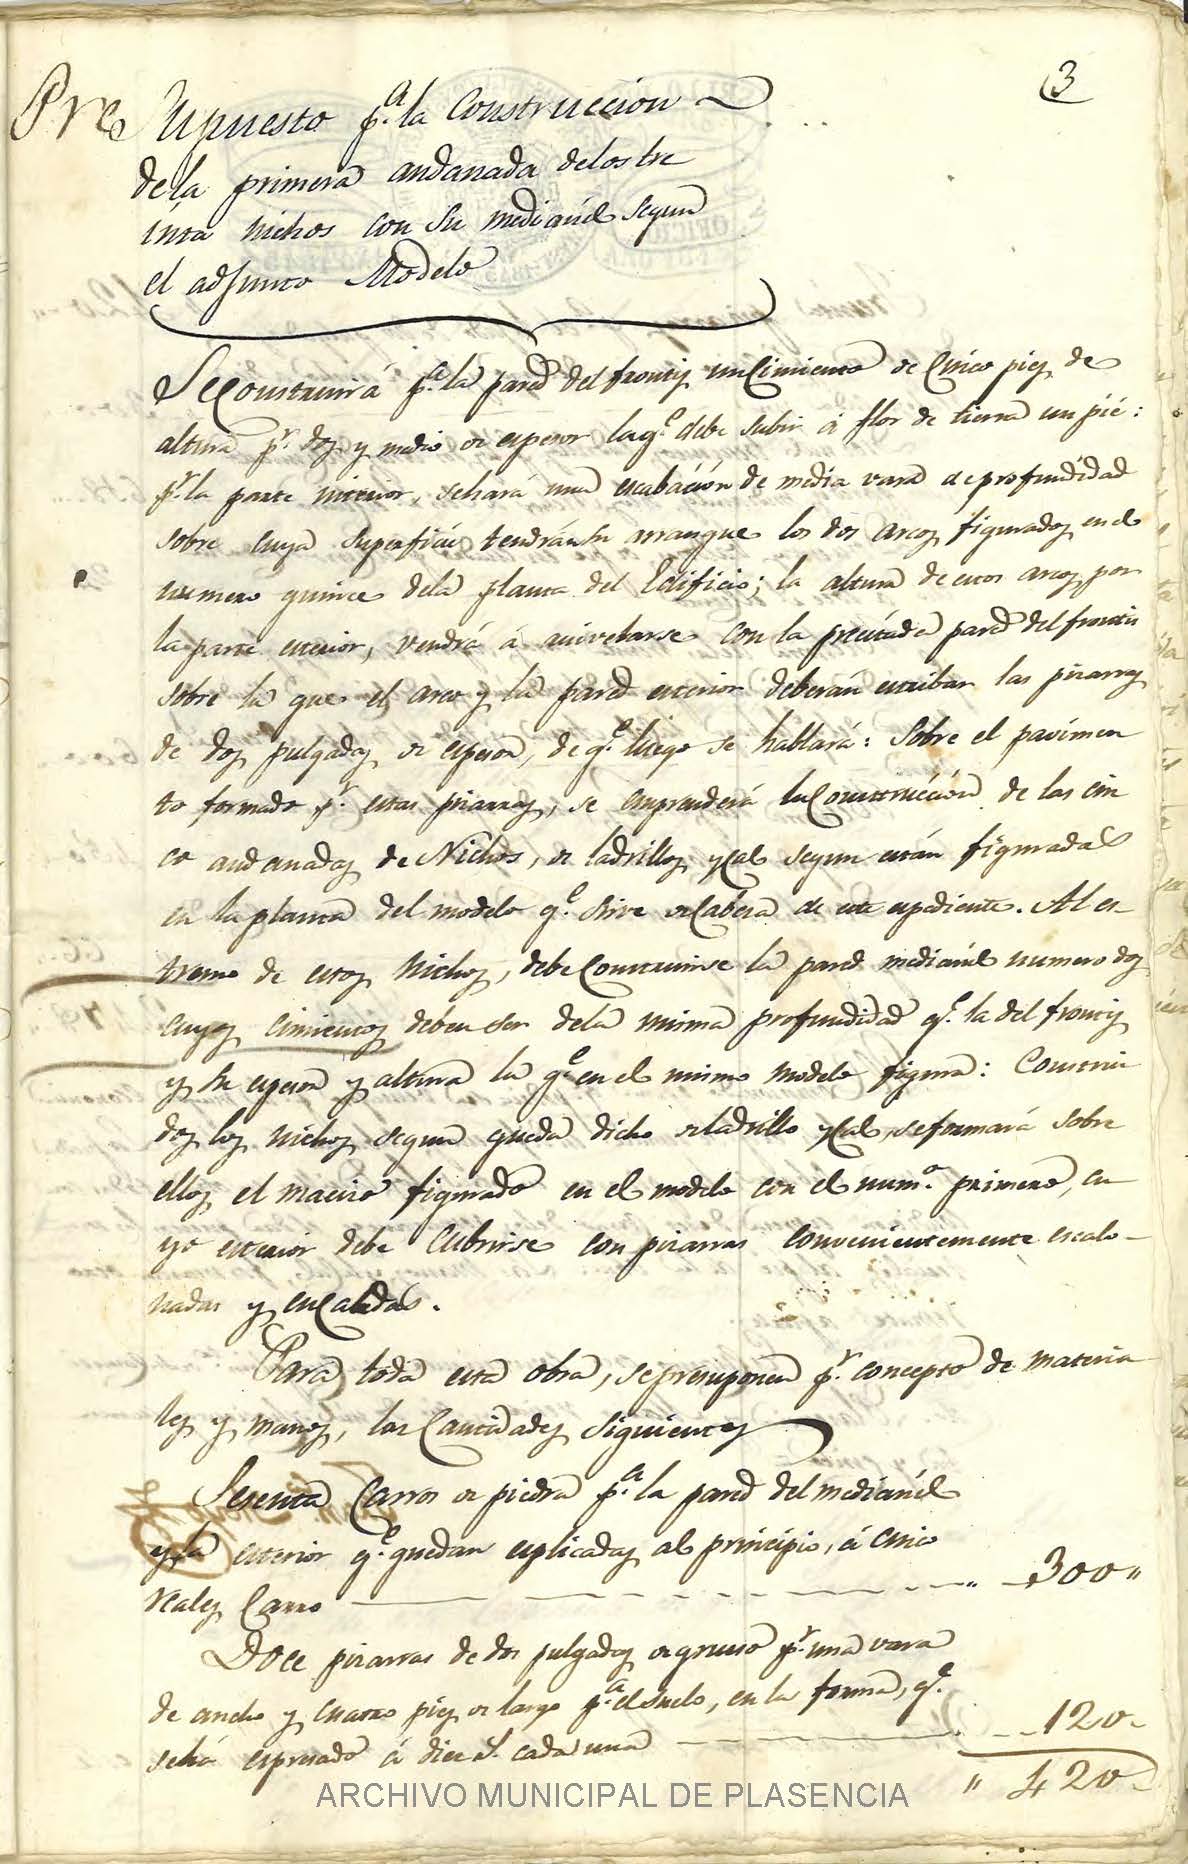 3
Presupuesto p.ª la Construccion
de la primera andanada de los tre
inta nichos con su medianil segun
el adjunto Modelo
Se Construirá p.ª la pared del frontis un Cimiento de Cinco pies de
altura p.r dos y medio de espesor la q.e debe subir á flor de tierra un pié:
p.r la parte interior, se hará una escabación de media vara de profundidad
sobre cuya superficie tendrán su arranque los dos arcos figurados en el
numero quince de la planta del Edificio; la altura de estos arcos por
la parte esterior, vendrá á nivelarse con la precitada pared del frontis
sobre la que el arco y la pared esterior deberán estribar las pizarras
de dos pulgadas de espesor, de q.e luego se hablará: Sobre el pavimen
to formado p.r estas pizarras, se emprenderá la Construcción de las cin
co andanadas de Nichos, de ladrillos y cal segun están figuradas
en la planta del modelo q.e sirve de Cabeza de este espediente. Al es-
tremo de estos Nichos, debe Construirse la pared medianil numero dos
cuyos cimientos deben ser de la misma profundidad q.e la del frontis
y su espesor y altura la q.e en el mismo modelo figura: Construi
dos los nichos segun queda dicho de ladrillo y cal, se formará sobre
ellos el macizo figurado en el modelo con el num.º primero, cu
yo esterior debe cubrirse con pizarras convenientemente escalo-
nadas y encaladas.
Para toda esta obra, se presuponen p.r concepto de materia
les y manos, las Cantidades siguientes
Sesenta Carros de piedra p.ª la pared del medianil
y la esterior q.e quedan esplicadas al principio, á cinco
reales Carro — " — 300 "
Doce pizarras de dos pulgadas de grueso p.r una vara
de ancho y cuatro pies de largo p.ª el suelo, en la forma, q.e
se há espresado á diez r.s cada una — 120
" 420
ARCHIVO MUNICIPAL DE PLASENCIA